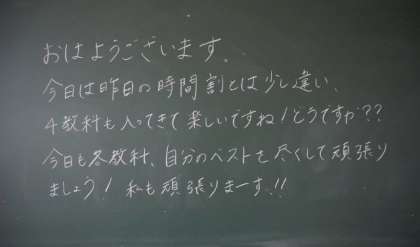 おはようございます。
今日は昨日の時間割とは少し違い、
4教科も入ってきて楽しいですね!どうですか??
今日も各教科、自分のベストを尽くして頑張り
ましょう! 私も頑張りまーす!!